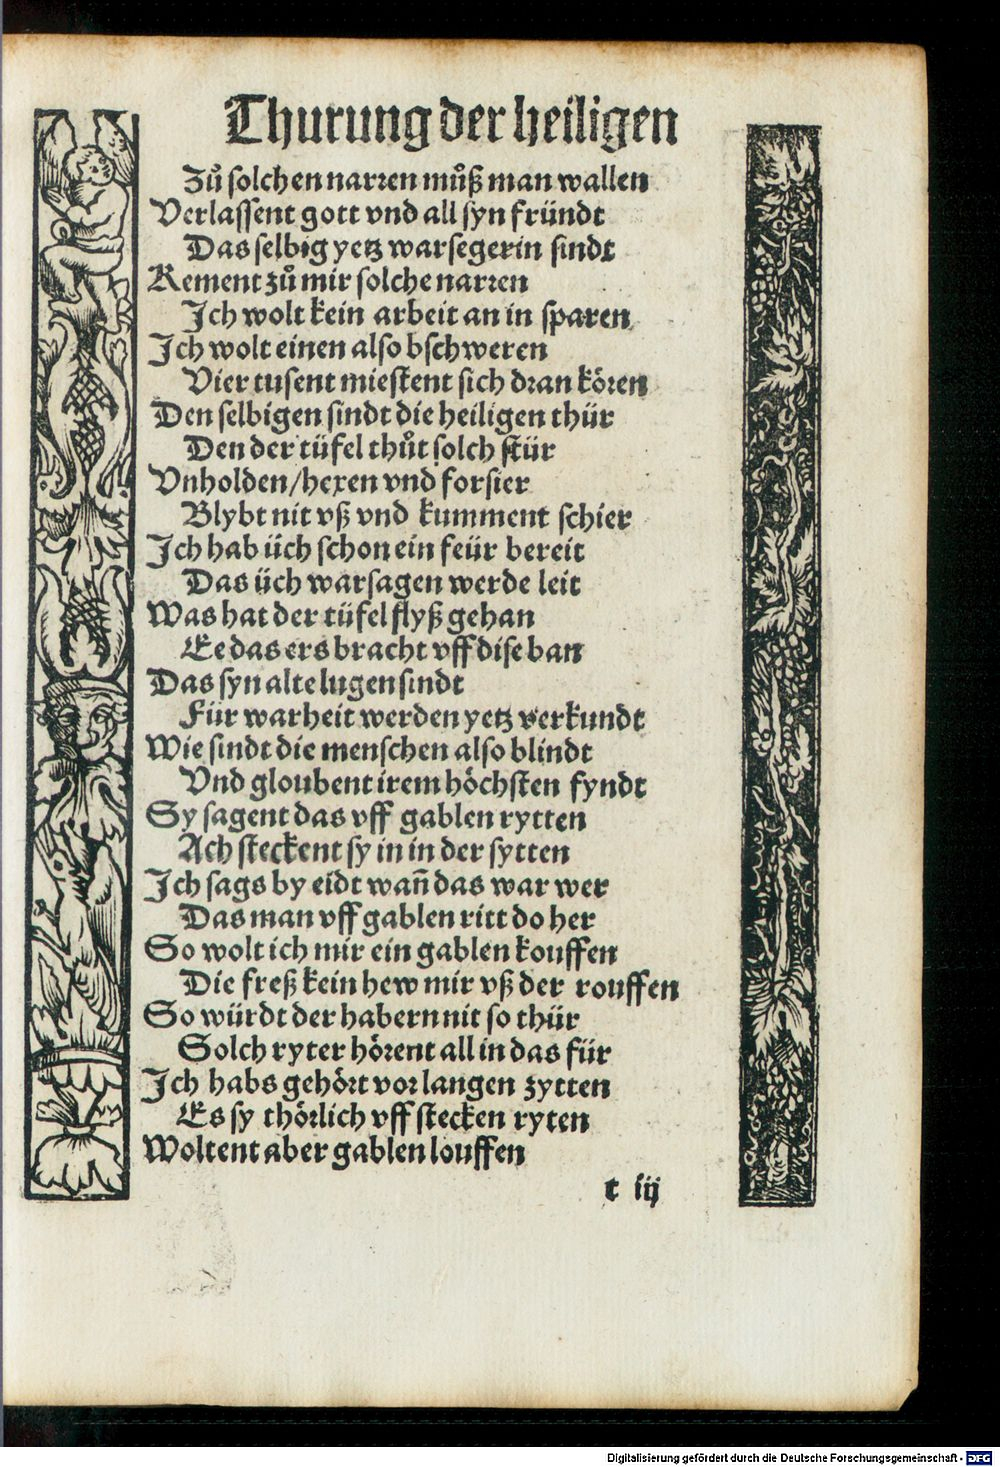 Thurung der heiligen
Zů solchen narren můß man wallen
Verlassent gott vnd all syn fründt
Das selbig yetz warsegerin sindt
Kement zů mir solche narren
Ich wolt kein arbeit an in sparen
Ich wolt einen also bschweren
Vier tusent miestent sich dran kören
Den selbigen sindt die heiligen thür
Den der tüfel thůt solch stür
Vnholden/hexen vnd forsier
Blybt nit vß vnd kumment schier
Ich hab üch schon ein feür bereit
Das üch warsagen werde leit
Was hat der tüfel flyß gehan
Ee das ers bracht vff dise ban
Das syn alte lugen sindt
Für warheit werden yetz verkundt
Wie sindt die menschen also blindt
Vnd gloubent irem höchsten fyndt
Sy sagent das vff gablen rytten
Ach steckent sy in in der sytten
Ich sags by eidt wañ das war wer
Das man vff gablen ritt do her
So wolt ich mir ein gablen kouffen
Die freß kein hew mir vß der rouffen
So würdt der habern nit so thür
Solch ryter hörent all in das für
Ich habs gehört vor langen zytten
Es sy thörlich vff stecken ryten
Woltent aber gablen louffen
t iij
Digitalisierung gefördert durch die Deutsche Forschungsgemeinschaft - DFG